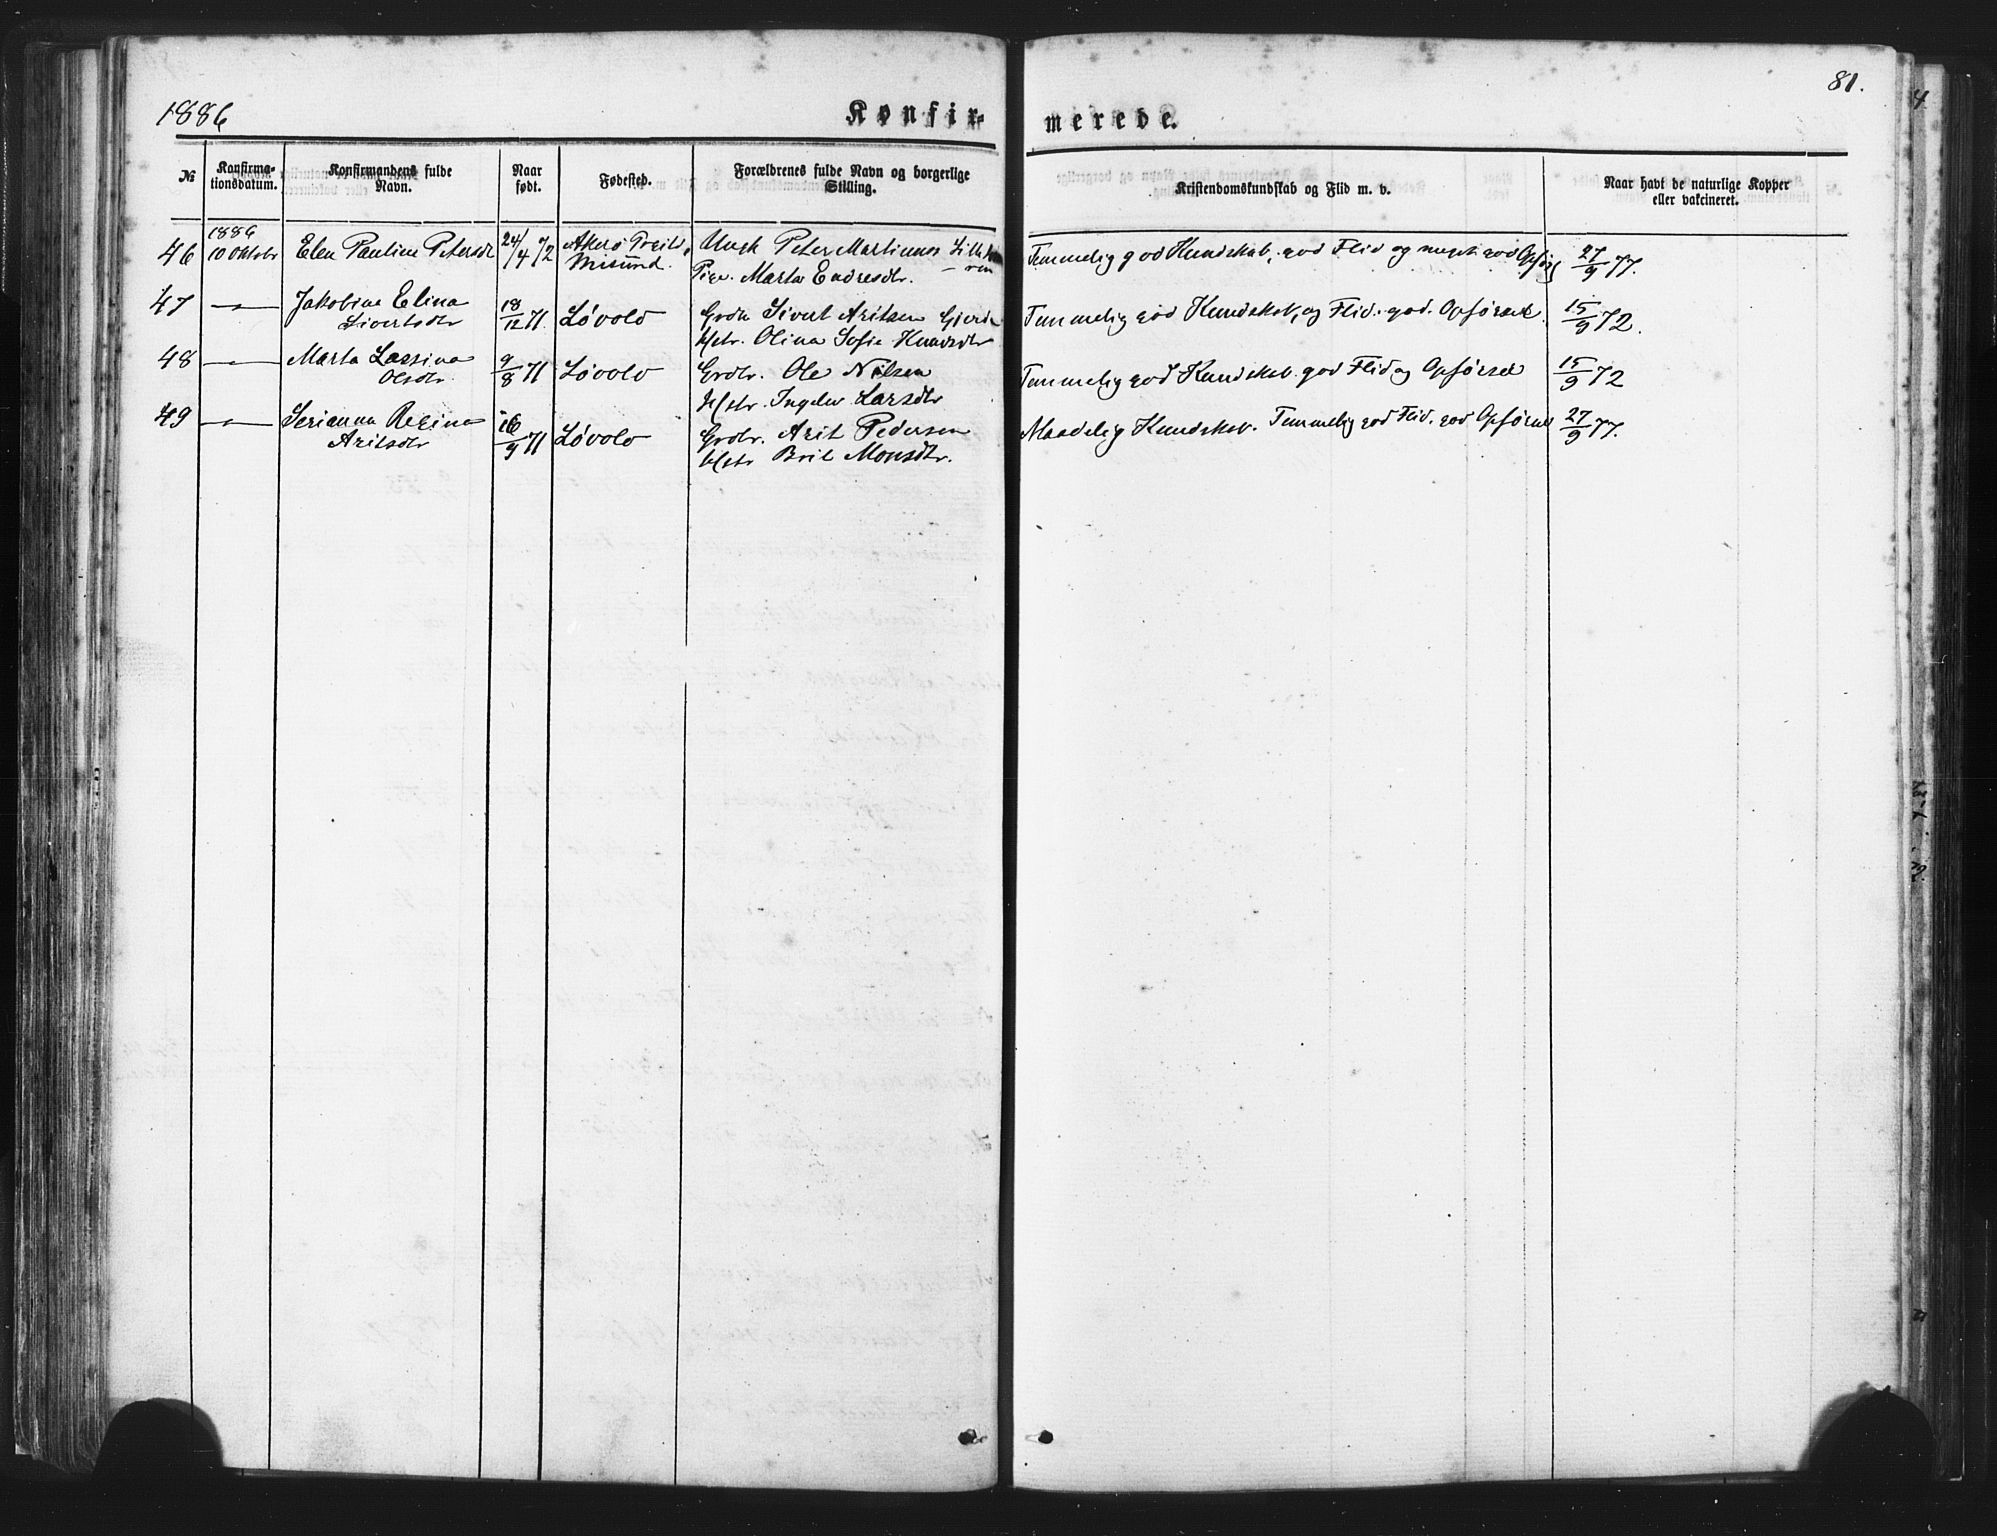 1886
81.
Konfirmerede.
№ Konfirmationsdatum. Konfirmandens fulde Navn. Naar født. Fødested. Forældrenes fulde Navn og borgerlige Stilling. Kristendomskundskab og Flid m. v. Naar havt de naturlige Kopper eller vakcineret.
46 1886 10 Oktobr Elen Pauline Petersdtr 24/4 72 Akerø Misund. Ungk Peter Martinus Pige. Marta Endresdtr. Temmelig god Kundskab, god Flid og meget god Opførs 27/9 77.
47 — Jakobine Elina Sivertsdtr 18/12 71. Løvold Grdr Sivert Aritsen Hstr. Olina Sofie Knudsdtr Temmelig god Kundskab, og Flid. god. Opførsel. 15/9 72.
48 — Marta Lassina Olsdtr. 9/8 71 Løvold Grdbr. Ole Nilsen Hstr. Ingebr Larsdtr Temmelig god Kundskab. god Flid og Opførsel 15/9 72
49 — Serianna Regina Aritsdtr 16/9 71 Løvold Grdbr. Arit Pedersen Hstr Brit Monsdtr. Maadelig Kundskab. Temmelig god Flid. god Opførsel 27/9 77.